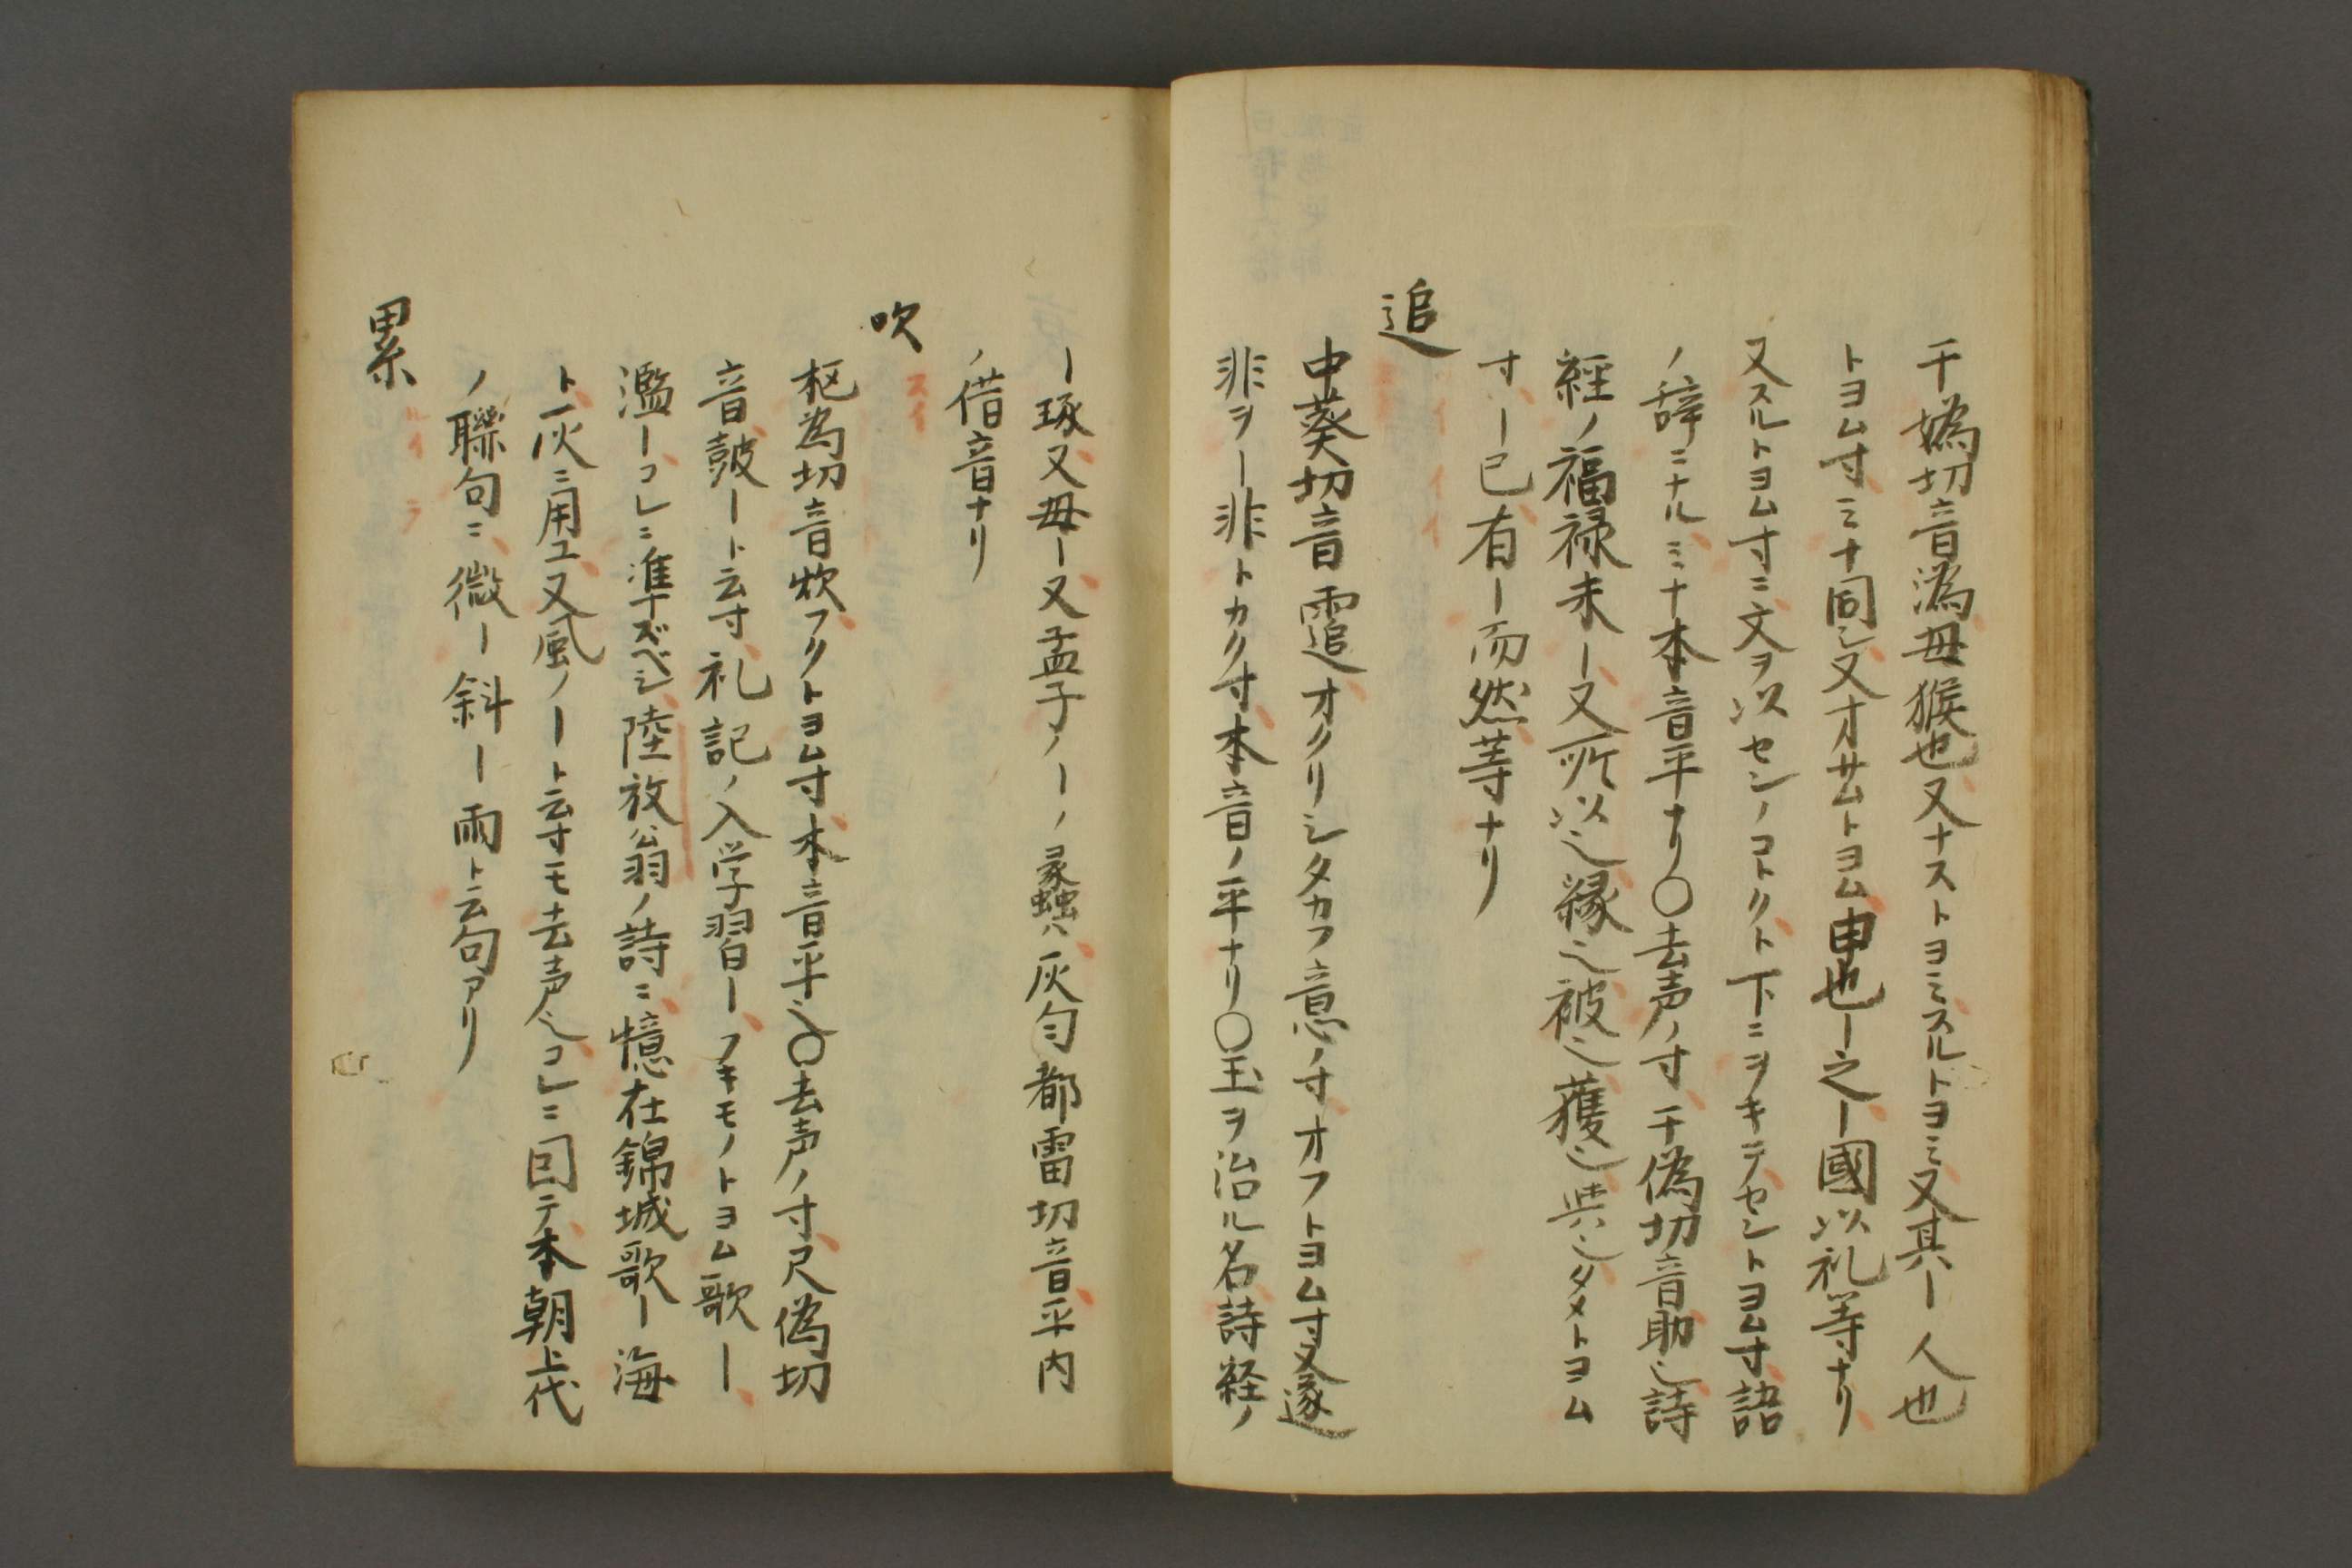 干嬀切音潙母猴也又ナストヨミスルトヨミ又其ー人也
トヨム寸ミナ同シ又オサムトヨム申也ー之ー國以礼等ナリ
又スルトヨム寸ニ文ヲ以センノコトクト下ニヲキテセントヨム寸語
ノ辞ニナルミナ本音平ナリ〇去声ノ寸干偽切音助也詩
經ノ福禄未ー又所以也縁也被也獲也與也タメトヨム
寸ー已有ー而然䓁ナリ
追
中葵切音䨨オクリシタカフ意ノ寸オフトヨム寸又遂
非ヲー非トカク寸本音ノ平ナリ〇玉ヲ治ル名詩経ノ
ー琢又毋ー又孟子ノーノ蠡ハ灰匀都雷切音平内
ノ借音ナリ
吹
スイ
枢為切音炊フクトヨム寸本音平也〇去声ノ寸尺偽切
音皷ート云寸礼記ノ入学習ーフキモノトヨム歌ー
濫ーコレニ準ズベシ陸放翁ノ詩ニ憶在錦城歌ー海
ト一灰ニ用ユ又風ノート云寸モ去声也コレニ因テ本朝上代
ノ聯句ニ微ー斜ー雨ト云句アリ
累
ルイ ラ